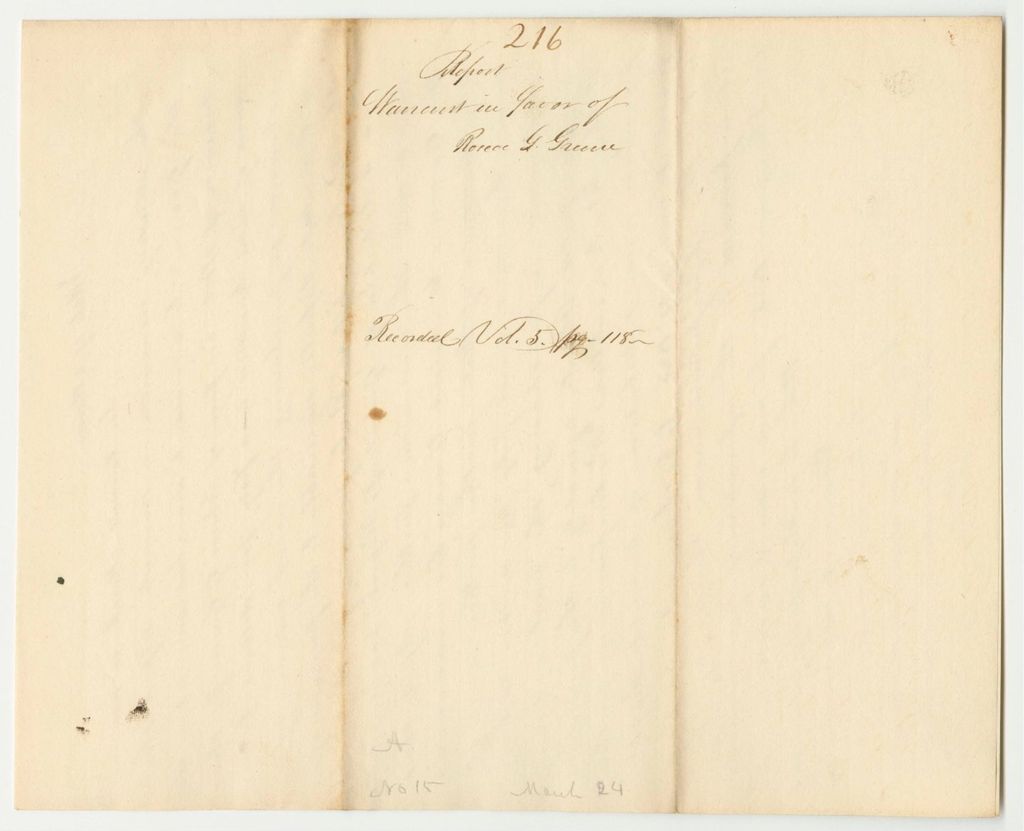 216
Report
Warrant in favor of
Roscoe G Greene
Recorded Vol. 5. pg- 118
A
No 15 March 24